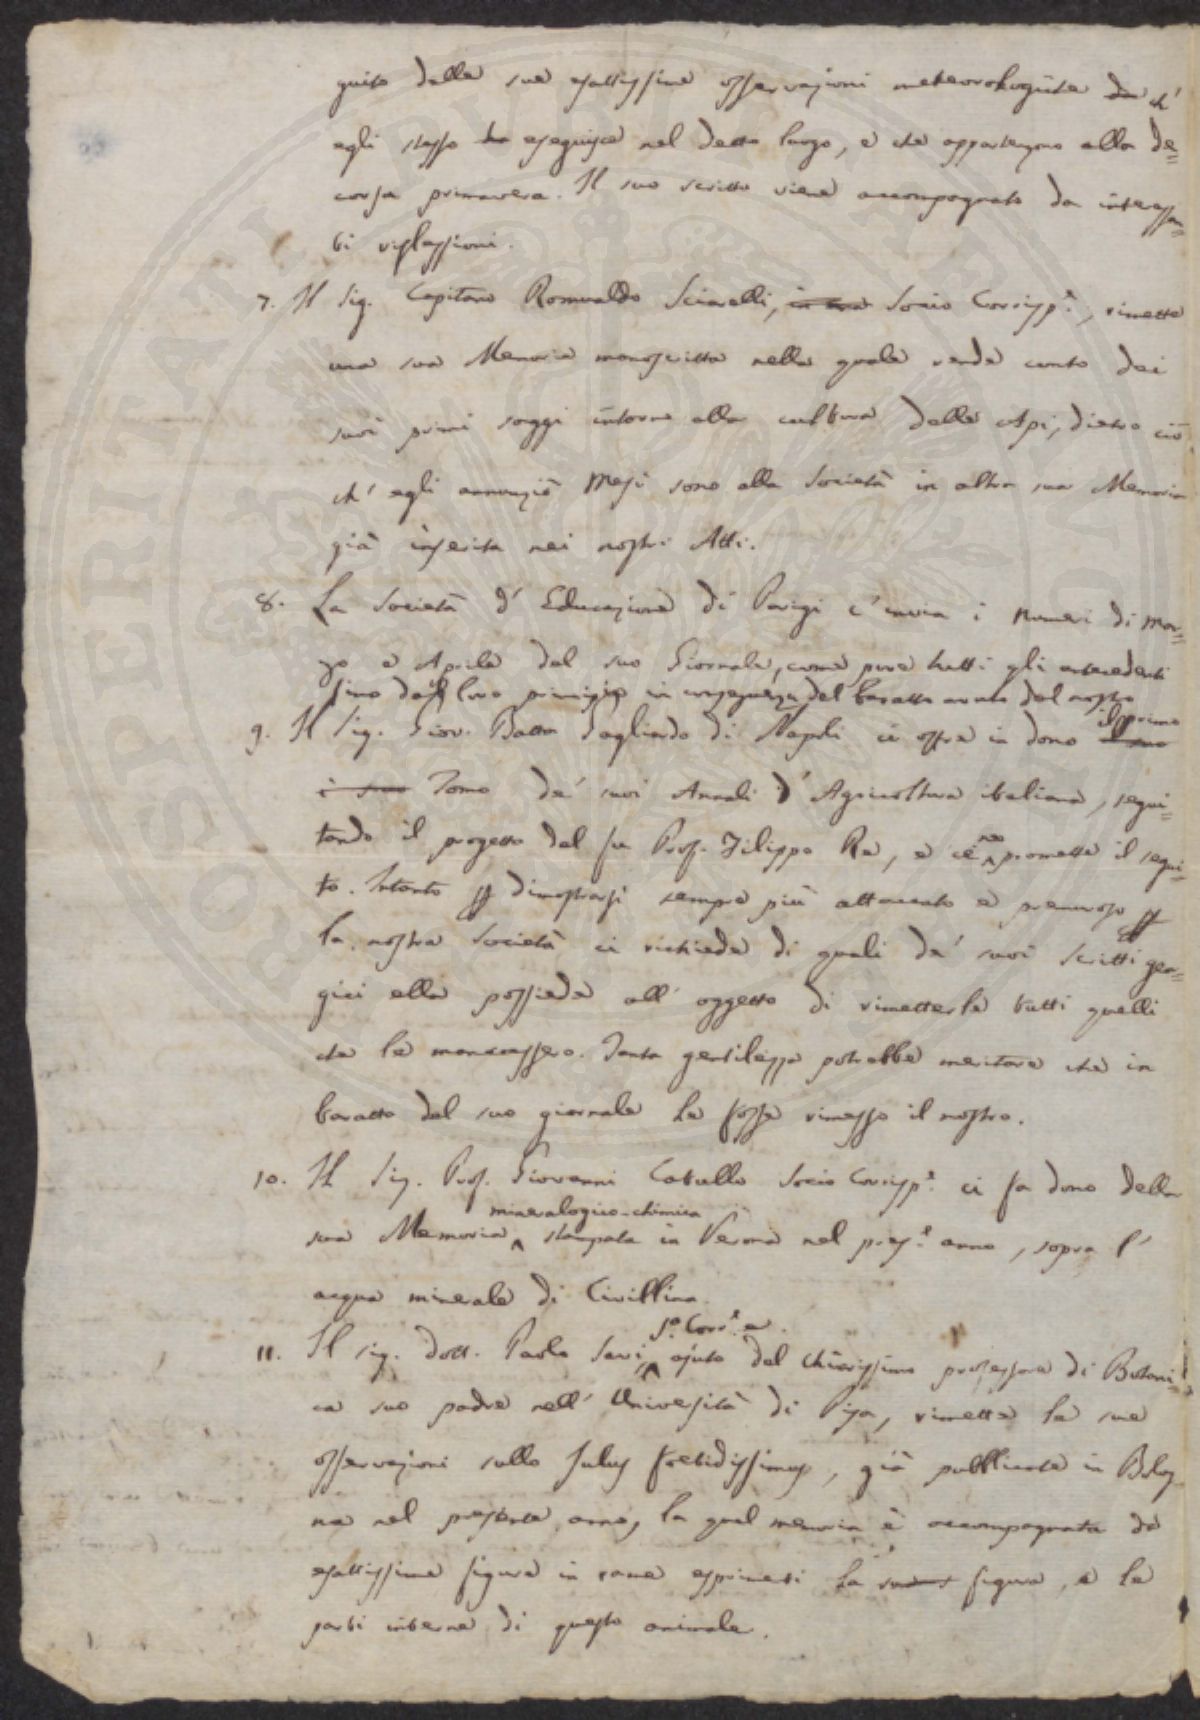 guito delle sue esattissime osservazioni meteorologiche da ch'
egli stesso ha eseguisce nel detto luogo, e che appartengono alla de=
corsa primavera. Il suo scritto viene accompagnato da interessan=
ti riflessioni.
7. Il Sig. Capitano Romualdo Sciarelli, Socio Corrisp.e, rimette
una sua Memoria manoscritta nella quale rende conto dei
suoi primi saggi intorno alla cultura delle Api, dietro ciò
ch' egli annunziò mesi sono alla Società in altra sua Memoria
già inserita nei nostri Atti.
8. La Società d' Educazione di Parigi c' invia i numeri di mar=
zo e Aprile del suo Giornale, come pure tutti gli antecedenti
fino dal loro principio in conseguenza del baratto avuto del nostro
9. Il Sig. Giov. Batta Gagliardo di Napoli ci offre in dono il primo
i suo Tomo de' suoi Annali d' Agricoltura italiana, segui=
tando il progetto del fu Prof. Filippo Re, e ce ne promette il segui=
to. Intanto p dimostrarsi sempre più attaccato e premuroso p
la nostra Società ci richiede di quali de' suoi scritti geor=
gici ella possiede all' oggetto di rimetterle tutti quelli
che le mancassero. Tanta gentilezza potrebbe meritare che in
baratto del suo giornale le fosse rimesso il nostro.
10. Il Sig. Prof. Giovanni Catullo Socio Corrisp.e ci fa dono della
mineralogico-chimica
sua Memoria stampata in Verona nel pres.e anno, sopra l'
acqua minerale di Civillina.
So. Corr.e e
11. Il sig. dott. Paolo Savi, ajuto del chiarissimo professore di Botani=
ca suo padre nell' Università di Pisa, rimette le sue
osservazioni sullo Julus foetidissimus, già pubblicate in Bolog
na nel presente anno, la qual memoria è accompagnata da
esattissime figure in rame esprimenti la figura, e le
parti interne di questo animale.